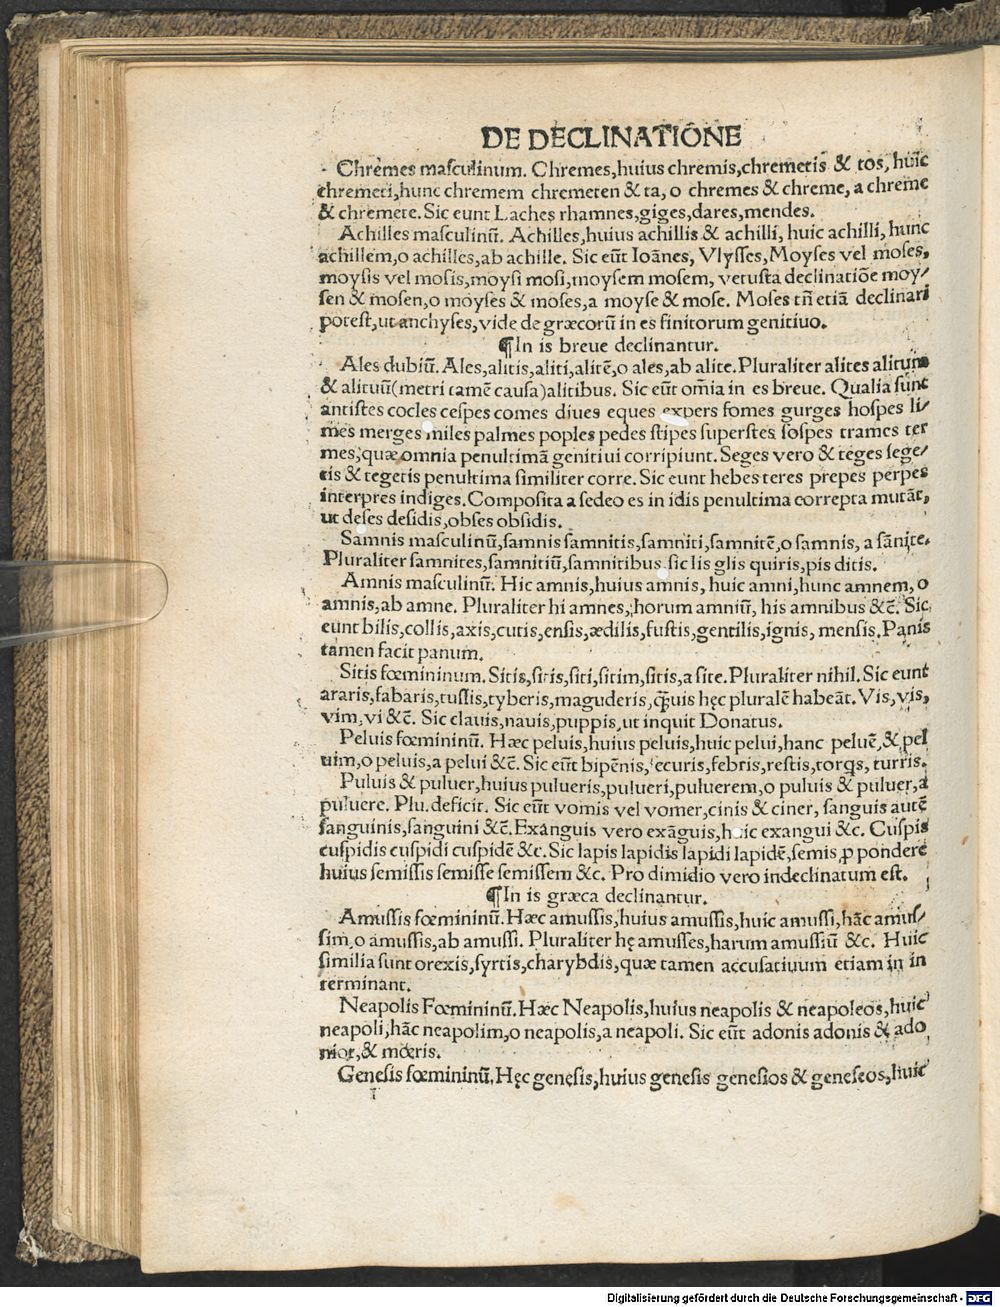 DE DECLINATIONE
Chremes maſculinum. Chremes,huius chremis,chremetis & tos, huic
chremeti,hunc chremem chremeten & ta, o chremes & chreme, a chreme
& chremete. Sic eunt Laches rhamnes,giges,dares,mendes.
Achilles maſculinū. Achilles,huius achillis & achilli, huic achilli, hunc
achillem,o achilles,ab achille. Sic eūt Ioānes, Vlyſſes, Moyſes vel moſes,
moyſis vel moſis,moyſi moſi,moyſem moſem, vetuſta declinatiōe moy/
ſen & moſen,o moyſes & moſes,a moyſe & moſe. Moſes tñ etiā declinari
poteſt,ut anchyſes,vide de græcorū in es finitorum genitiuo.
¶In is breue declinantur.
Ales dubiū. Ales,alitis,aliti,alitē,o ales,ab alite.Pluraliter alites alitum
& alituū(metri tamē cauſa)alitibus. Sic eūt om̄ia in es breue. Qualia ſunt
antiſtes cocles ceſpes comes diues eques expers fomes gurges hoſpes li/
mes merges miles palmes poples pedes ſtipes ſuperſtes ſoſpes trames ter
mes,quæ omnia penultimā genitiui corripiunt. Seges vero & teges ſege/
tis & tegetis penultima ſimiliter corre. Sic eunt hebes teres prepes perpes
interpres indiges.Compoſita a ſedeo es in idis penultima correpta mutāt,
ut deſes deſidis,obſes obſidis.
Samnis maſculinū,ſamnis ſamnitis,ſamniti,ſamnitē,o ſamnis, a ſānite.
Pluraliter ſamnites,ſamnitiū,ſamnitibus ſic lis glis quiris,pis ditis.
Amnis maſculinū. Hic amnis,huius amnis, huic amni,hunc amnem, o
amnis,ab amne. Pluraliter hi amnes, horum amniū, his amnibus &c̄. Sic
eunt bilis,collis,axis,cutis,enſis,ædilis,fuſtis,gentilis,ignis, menſis.Panis
tamen facit panum.
Sitis fœmininum. Sitis,ſitis,ſiti,ſitim,ſitis,a ſite.Pluraliter nihil.Sic eunt
araris,fabaris,tuſſis,tyberis,maguderis,q̄uis hęc pluralē habeāt. Vis,vis,
vim,vi &c̄. Sic clauis,nauis,puppis,ut inquit Donatus.
Peluis fœmininū. Hæc peluis,huius peluis,huic pelui,hanc peluē,& pel
uim,o peluis,a pelui &c̄. Sic eūt bipēnis,ſecuris,febris,reſtis,torqs, turris.
Puluis & puluer,huius pulueris,pulueri,puluerem,o puluis & puluer,a
puluere. Plu.deficit. Sic eūt vomis vel vomer,cinis & ciner, ſanguis autē
ſanguinis,ſanguini &c̄.Exanguis vero exāguis,huic exangui &c. Cuſpis
cuſpidis cuſpidi cuſpidē &c.Sic lapis lapidis lapidi lapidē,ſemis ꝓ pondere
huius ſemiſſis ſemiſſe ſemiſſem &c. Pro dimidio vero indeclinatum eſt.
¶In is græca declinantur.
Amuſſis fœmininū. Hæc amuſſis,huius amuſſis,huic amuſſi,hāc amuſ/
ſim,o amuſſis,ab amuſſi. Pluraliter hę amuſſes,harum amuſſiū &c. Huic
ſimilia ſunt orexis,ſyrtis,charybdis,quæ tamen accuſatiuum etiam in in
terminant.
Neapolis Fœmininū.Hæc Neapolis,huius neapolis & neapoleos,huic
neapoli,hāc neapolim,o neapolis,a neapoli. Sic eūt adonis adonis & ado
nios,& mœris.
Geneſis fœmininū.Hęc geneſis,huius geneſis geneſios & geneſeos,huic
Digitalisierung gefördert durch die Deutsche Forschungsgemeinschaft - DFG